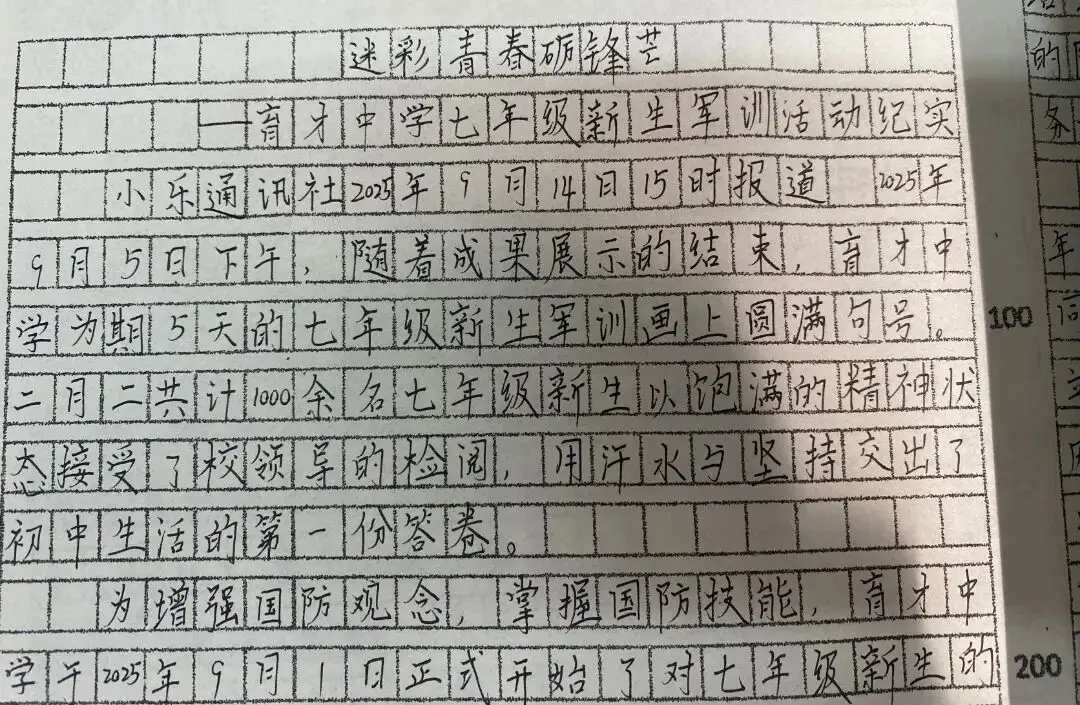 迷彩青春砺锋芒
——育才中学七年级新生军训活动纪实
小乐通讯社2025年9月14日15时报道 2025年
9月5日下午，随着成果展示的结束，育才中
学为期5天的七年级新生军训画上圆满句号。
二月二共计1000余名七年级新生以饱满的精神状
态接受了校领导的检阅，用汗水与坚持交出了
初中生活的第一份答卷。
为增强国防观念，掌握国防技能，育才中
学于2025年9月1日正式开始了对七年级新生的
100
200
的
务
年